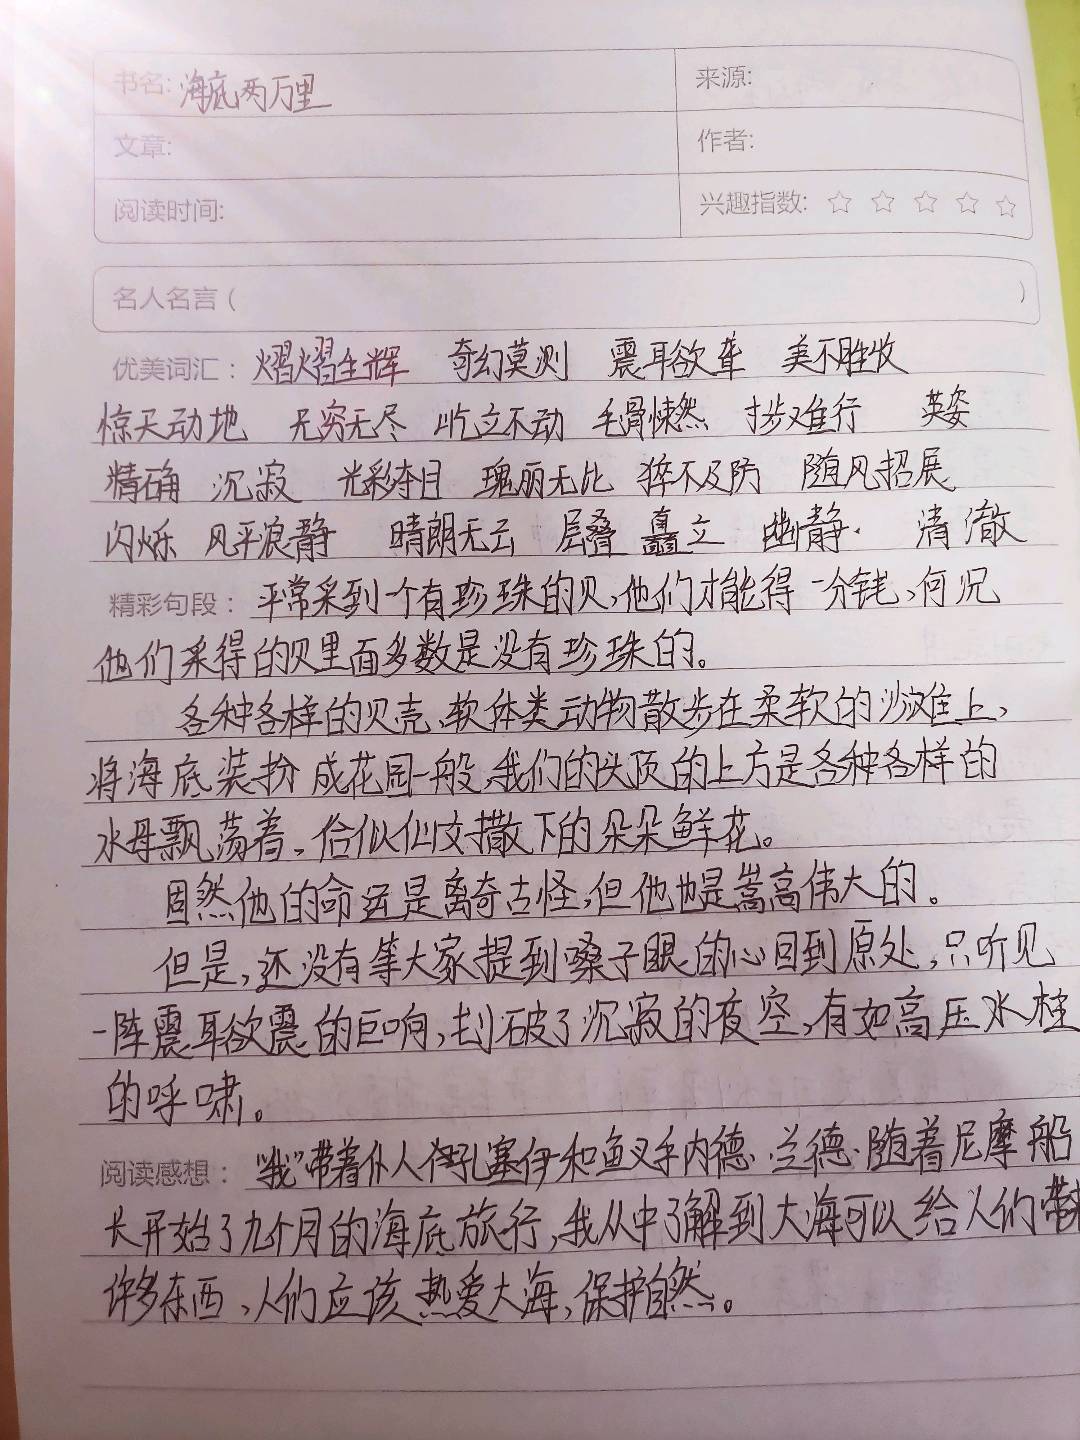 书名: 海底两万里 来源:
文章: 作者:
阅读时间: 兴趣指数: ☆ ☆ ☆ ☆ ☆
名人名言 ( )
优美词汇: 熠熠生辉 奇幻莫测 震耳欲聋 美不胜收
惊天动地 无穷无尽 屹立不动 毛骨悚然 寸步难行 英姿
精确 沉寂 光彩夺目 瑰丽无比 猝不及防 随风招展
闪烁 风平浪静 晴朗无云 层叠 矗立 幽静. 清澈
精彩句段: 平常采到一个有珍珠的贝,他们才能得一分钱,何况
他们采得的贝里面多数是没有珍珠的。
各种各样的贝壳、软体类动物散步在柔软的沙滩上,
将海底装扮成花园一般、我们的头顶的上方是各种各样的
水母飘荡着、恰似仙女撒下的朵朵鲜花。
固然他的命运是离奇古怪,但他也是嵩高伟大的。
但是,还没有等大家提到嗓子眼的心回到原处,只听见
一阵震耳欲震的巨响,划破了沉寂的夜空,有如高压水柱
的呼啸。
阅读感想: “我”带着仆人佣孔塞伊和鱼叉手内德·兰德·随着尼摩船
长开始了九个月的海底旅行,我从中了解到大海可以给人们带来
许多东西、人们应该热爱大海,保护自然。